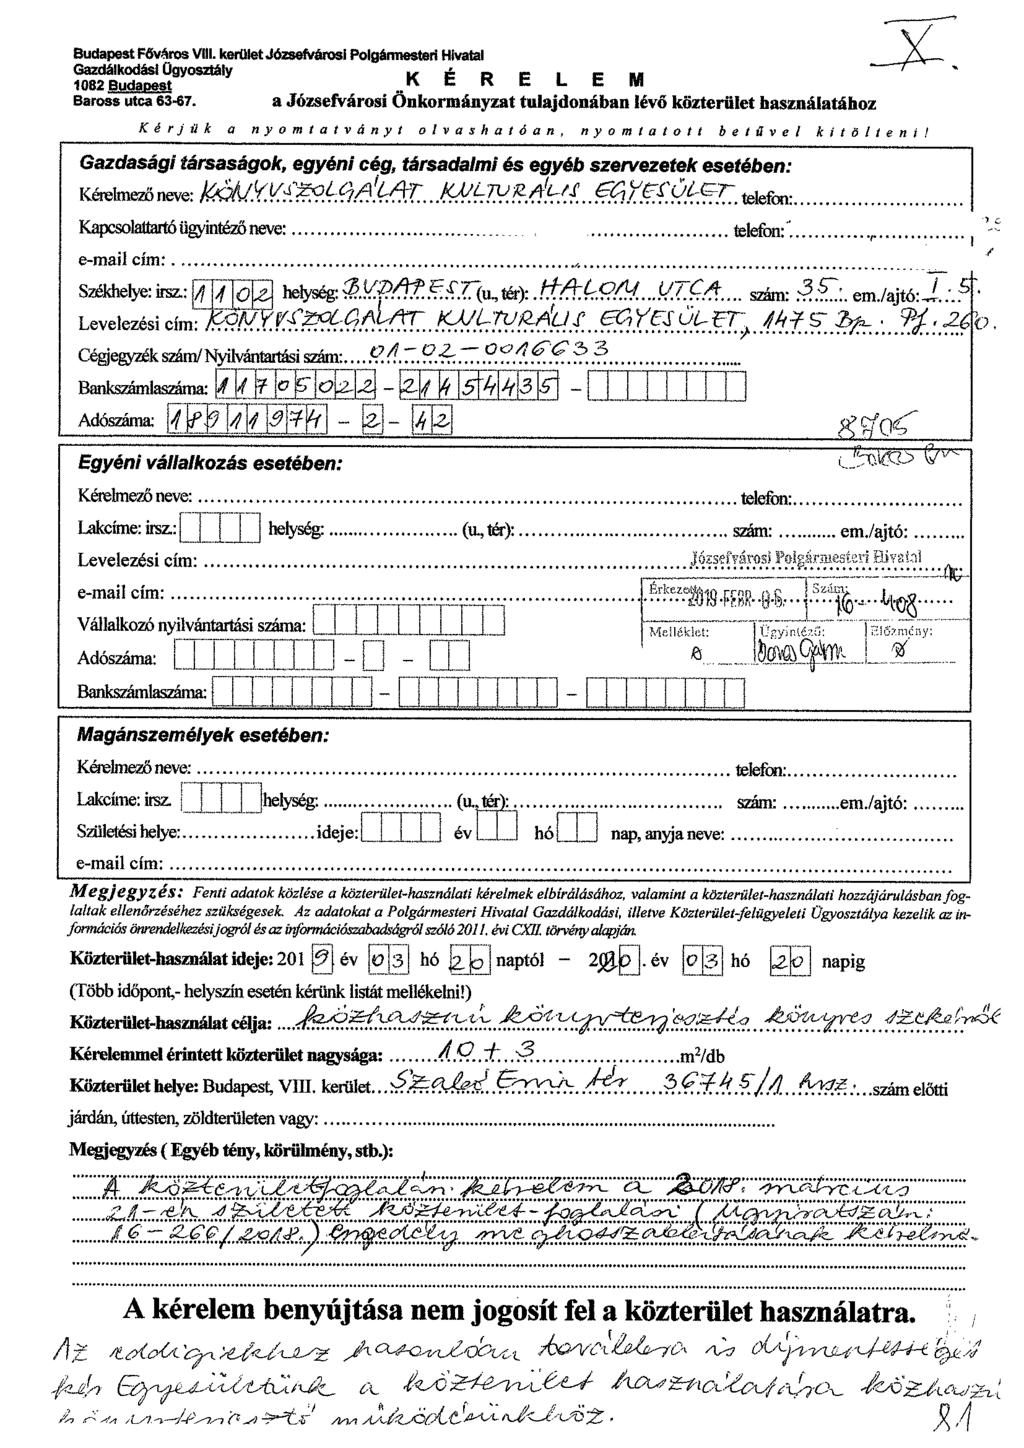 X.
Budapest Főváros VIII. kerület Józsefvárosi Polgármesteri Hivatal
Gazdálkodási Ügyosztály
1082 Budapest
Baross utca 63-67.
K É R E L E M
a Józsefvárosi Önkormányzat tulajdonában lévő közterület használatához
Kérjük a nyomtatványt olvashatóan, nyomtatott betűvel kitölteni!
Gazdasági társaságok, egyéni cég, társadalmi és egyéb szervezetek esetében:
Kérelmező neve: KÖNYVSZOLGÁLAT KULTURÁLIS EGYESÜLET telefon:
Kapcsolattartó ügyintéző neve: telefon:
e-mail cím:
Székhelye: irsz.: 1102 helység: BUDAPEST (u., tér): HALOM UTCA szám: 35. em./ajtó: I. 5.
Levelezési cím: KÖNYVSZOLGÁLAT KULTURÁLIS EGYESÜLET, 1475 Bp. Pf. 260.
Cégjegyzék szám/ Nyilvántartási szám: 01-02-0016633
Bankszámlaszáma: 11705022 - 21454435 -
Adószáma: 18911974 - 2 - 42
8705
Egyéni vállalkozás esetében:
Kérelmező neve: telefon:
Lakcíme: irsz.: helység: (u., tér): szám: em./ajtó:
Levelezési cím: Józsefvárosi Polgármesteri Hivatal
e-mail cím: Érkezett: 2019 FEBR. 06. Szám: 16-408
Vállalkozó nyilvántartási száma: Melléklet: Ügyintéző: Előzmény:
Adószáma: - -
Bankszámlaszáma: - -
Magánszemélyek esetében:
Kérelmező neve: telefon:
Lakcíme: irsz. helység: (u., tér): szám: em./ajtó:
Születési helye: ideje: év hó nap, anyja neve:
e-mail cím:
Megjegyzés: Fenti adatok közlése a közterület-használati kérelmek elbírálásához, valamint a közterület-használati hozzájárulásban fog-
laltak ellenőrzéséhez szükségesek. Az adatokat a Polgármesteri Hivatal Gazdálkodási, illetve Közterület-felügyeleti Ügyosztálya kezelik az in-
formációs önrendelkezési jogról és az információszabadságról szóló 2011. évi CXII. törvény alapján.
Közterület-használat ideje: 2019 év 03 hó 20 naptól – 2020. év 03 hó 20 napig
(Több időpont,- helyszín esetén kérünk listát mellékelni!)
Közterület-használat célja: közhasznú könyvterjesztés könyves székérről
Kérelemmel érintett közterület nagysága: 10 + 3 m²/db
Közterület helye: Budapest, VIII. kerület Szabó Ervin tér 36745/1 hrsz. szám előtti
járdán, úttesten, zöldterületen vagy:
Megjegyzés ( Egyéb tény, körülmény, stb.):
A közterületfoglalási kérelem a 2018. március
21-én született közterület-foglalási (Ügyiratszám:
16-266/2018.) engedély meghosszabbításának kérelme.
A kérelem benyújtása nem jogosít fel a közterület használatra.
Az eddigiekhez hasonlóan továbbra is díjmentességet
kér Egyesületünk a közterület használatára közhasznú
működésünkhöz.
81